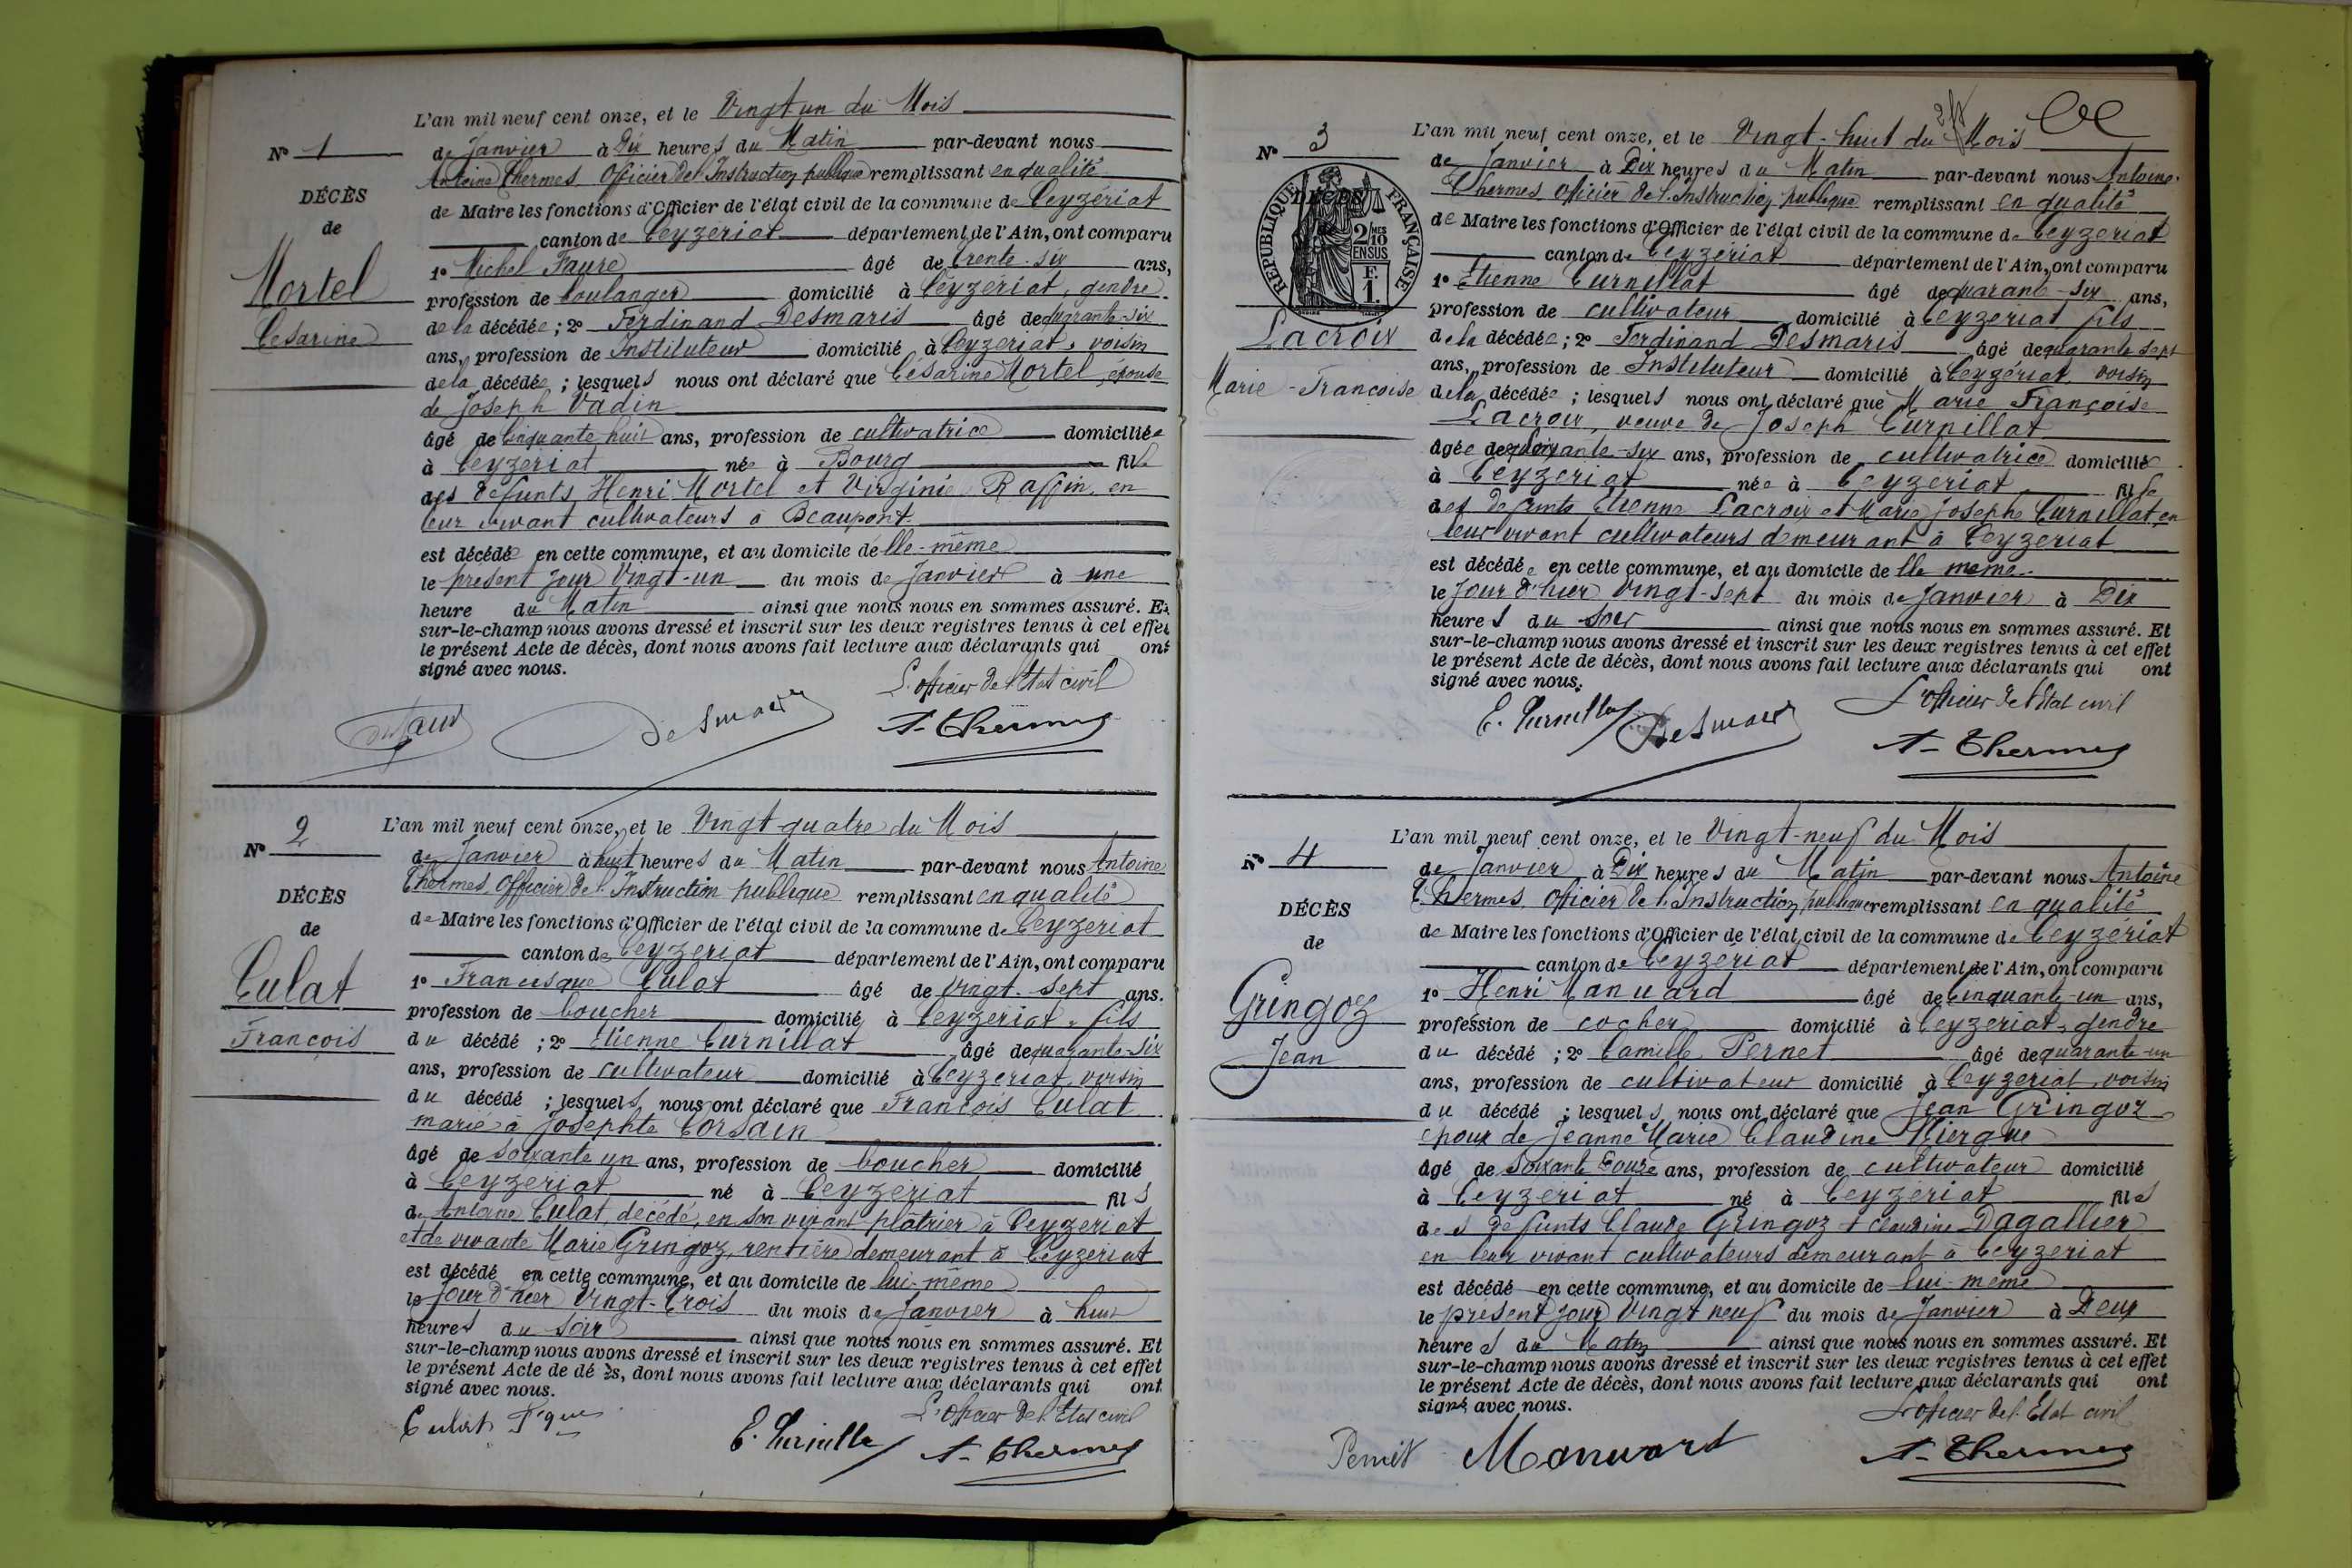 L'an mil neuf cent onze, et le Vingt un du Mois
N° 1
de Janvier à Dix heures du Matin par-devant nous
Antoine Thermes, Officier de l'Instruction publique remplissant en qualité
DÉCÈS
de Maire les fonctions d'Officier de l'état civil de la commune de Ceyzériat
de
canton de Ceyzériat département de l'Ain, ont comparu
1° Michel Faure âgé de trente-six ans,
Mortel
profession de boulanger domicilié à Ceyzériat, gendre
Césarine
de la décédée; 2° Ferdinand Desmaris âgé de quarante-six
ans, profession de Instituteur domicilié à Ceyzériat, voisin
de la décédée; lesquels nous ont déclaré que Césarine Mortel, épouse
de Joseph Vadin
âgé de Cinquante huit ans, profession de cultivatrice domiciliée
à Ceyzériat née à Bourg fille
des défunts Henri Mortel et Virginie Raffin, en
leur vivant cultivateurs à Beaupont
est décédée en cette commune, et au domicile de lle-même
le présent jour Vingt-un du mois de Janvier à une
heure du Matin ainsi que nous nous en sommes assuré. Et
sur-le-champ nous avons dressé et inscrit sur les deux registres tenus à cet effet
le présent Acte de décès, dont nous avons fait lecture aux déclarants qui ont
signé avec nous.
L'officier de l'Etat civil
Desmaris
A. Thermes
L'an mil neuf cent onze, et le Vingt-quatre du Mois
N° 2
de Janvier à huit heures du Matin par-devant nous Antoine
Thermes, Officier de l'Instruction publique remplissant en qualité
DÉCÈS
de Maire les fonctions d'Officier de l'état civil de la commune de Ceyzériat
de
canton de Ceyzériat département de l'Ain, ont comparu
Culat
1° Francisque Culat âgé de vingt-sept ans.
profession de boucher domicilié à Ceyzériat, fils
François
du décédé; 2° Etienne Curnillat âgé de quarante-six
ans, profession de cultivateur domicilié à Ceyzériat, voisin
du décédé; lesquels nous ont déclaré que François Culat
marié à Josephte Corsain
âgé de soixante un ans, profession de boucher domicilié
à Ceyzériat né à Ceyzériat fils
de Antoine Culat, décédé, en son vivant plâtrier à Ceyzériat
et de vivante Marie Gringoz, rentière demeurant à Ceyzériat
est décédé en cette commune, et au domicile de lui-même
le Jour d'hier Vingt-trois du mois de Janvier à huit
heures du soir ainsi que nous nous en sommes assuré. Et
sur-le-champ nous avons dressé et inscrit sur les deux registres tenus à cet effet
le présent Acte de décès, dont nous avons fait lecture aux déclarants qui ont
signé avec nous.
L'Officier de l'Etat civil
Culat Fque
E. Curnillat A. Thermes
L'an mil neuf cent onze, et le Vingt-huit du Mois
N° 3
de Janvier à Dix heures du Matin par-devant nous Antoine
Thermes, Officier de l'Instruction publique remplissant en qualité
DÉCÈS
RÉPUBLIQUE FRANÇAISE
2/10 MES
EN SUS
F.
1.
de Maire les fonctions d'Officier de l'état civil de la commune de Ceyzériat
canton de Ceyzériat département de l'Ain, ont comparu
1° Etienne Curnillat âgé de quarante-six ans,
profession de cultivateur domicilié à Ceyzériat fils
Lacroix
de la décédée; 2° Ferdinand Desmaris âgé de quarante sept
ans, profession de Instituteur domicilié à Ceyzériat, voisin
Marie-Françoise
de la décédée; lesquels nous ont déclaré que Marie Françoise
Lacroix, veuve de Joseph Curnillat
âgée de soixante-six ans, profession de cultivatrice domiciliée
à Ceyzériat née à Ceyzériat fille
des défunts Etienne Lacroix et Marie Josephe Curnillat, en
leur vivant cultivateurs demeurant à Ceyzériat
est décédée en cette commune, et au domicile de lle même
le Jour d'hier Vingt-sept du mois de Janvier à Dix
heures du soir ainsi que nous nous en sommes assuré. Et
sur-le-champ nous avons dressé et inscrit sur les deux registres tenus à cet effet
le présent Acte de décès, dont nous avons fait lecture aux déclarants qui ont
signé avec nous.
L'Officier de l'Etat civil
E. Curnillat Desmaris
A. Thermes
L'an mil neuf cent onze, et le Vingt-neuf du Mois
N° 4
de Janvier à Dix heures du Matin par-devant nous Antoine
Thermes, Officier de l'Instruction publique remplissant en qualité
DÉCÈS
de Maire les fonctions d'Officier de l'état civil de la commune de Ceyzériat
de
canton de Ceyzériat département de l'Ain, ont comparu
Gringoz
1° Henri Manuard âgé de Cinquante-un ans,
profession de cocher domicilié à Ceyzériat, gendre
Jean
du décédé; 2° Camille Pernet âgé de quarante-un
ans, profession de cultivateur domicilié à Ceyzériat, voisin
du décédé; lesquels nous ont déclaré que Jean Gringoz
époux de Jeanne Marie Claudine Niergue
âgé de Soixante douze ans, profession de cultivateur domicilié
à Ceyzériat né à Ceyzériat fils
des défunts Claude Gringoz et Claudine Dagallier
en leur vivant cultivateurs demeurant à Ceyzériat
est décédé en cette commune, et au domicile de lui-même
le présent jour Vingt neuf du mois de Janvier à Deux
heures du Matin ainsi que nous nous en sommes assuré. Et
sur-le-champ nous avons dressé et inscrit sur les deux registres tenus à cet effet
le présent Acte de décès, dont nous avons fait lecture aux déclarants qui ont
signé avec nous.
L'officier de l'Etat civil
Pernet Manuard
A. Thermes